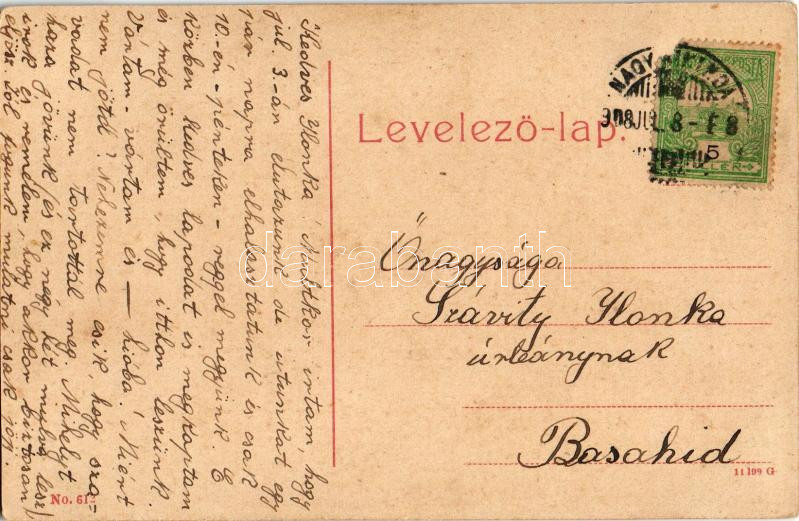 Kedves Ilonka! Minthkor irtam, hogy
júl 3.-án elutazunk de utunkat egy
pár napra elhalasztottunk és csak
10.-én - pénteken - reggel megyünk. E
közben kedves lapodat is megkaptam
és még örültem, hogy itthon leszünk.
Vártam - vártam és — hiába! Miért
nem jöttél? Nehezemre esik, hogy sza-
vadat nem tartottad meg. Mihelyt
haza jövünk (és ez négy hét mulva lesz)
irok és remélem, hogy akkor biztosan
eljösz. Jól fogunk mulatni csak jőjj.
No. 61
Levelező-lap.
NAGYKIKINDA
908 JUL 8
5
Őnagysága
Szávity Ilonka
úrleánynak
Basahid
11199 G
darabanth